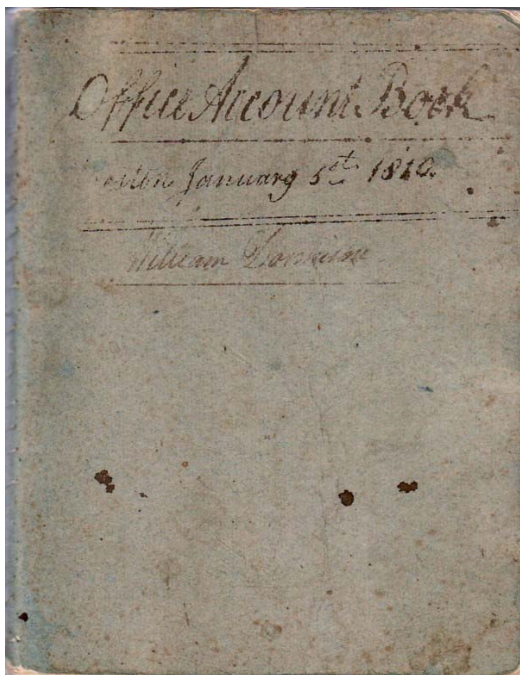 Office Account Book
January 5st 1810.
William